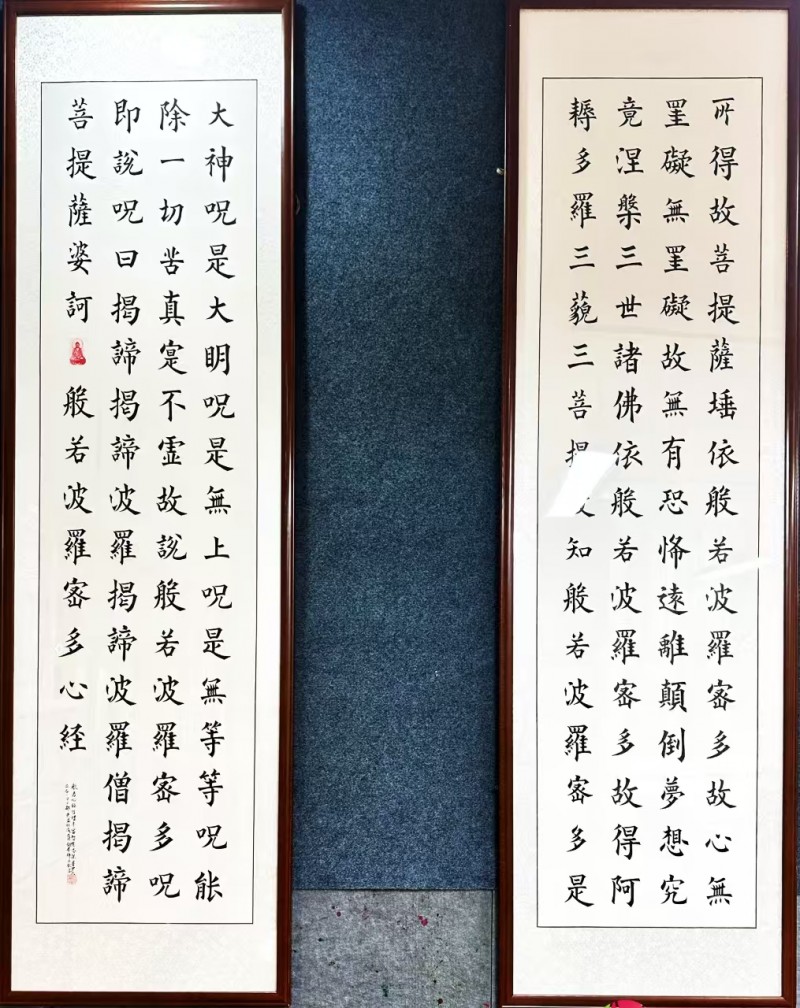 所得故菩提薩埵依般若波羅蜜多故心無
罣礙無罣礙故無有恐怖遠離顛倒夢想究
竟涅槃三世諸佛依般若波羅蜜多故得阿
耨多羅三藐三菩提知般若波羅蜜多是
大神呪是大眀呪是無上呪是無等等呪能
除一切苦真寔不虛故說般若波羅蜜多呪
即說呪曰揭諦揭諦波羅揭諦波羅僧揭諦
菩提薩婆訶 般若波羅蜜多心経